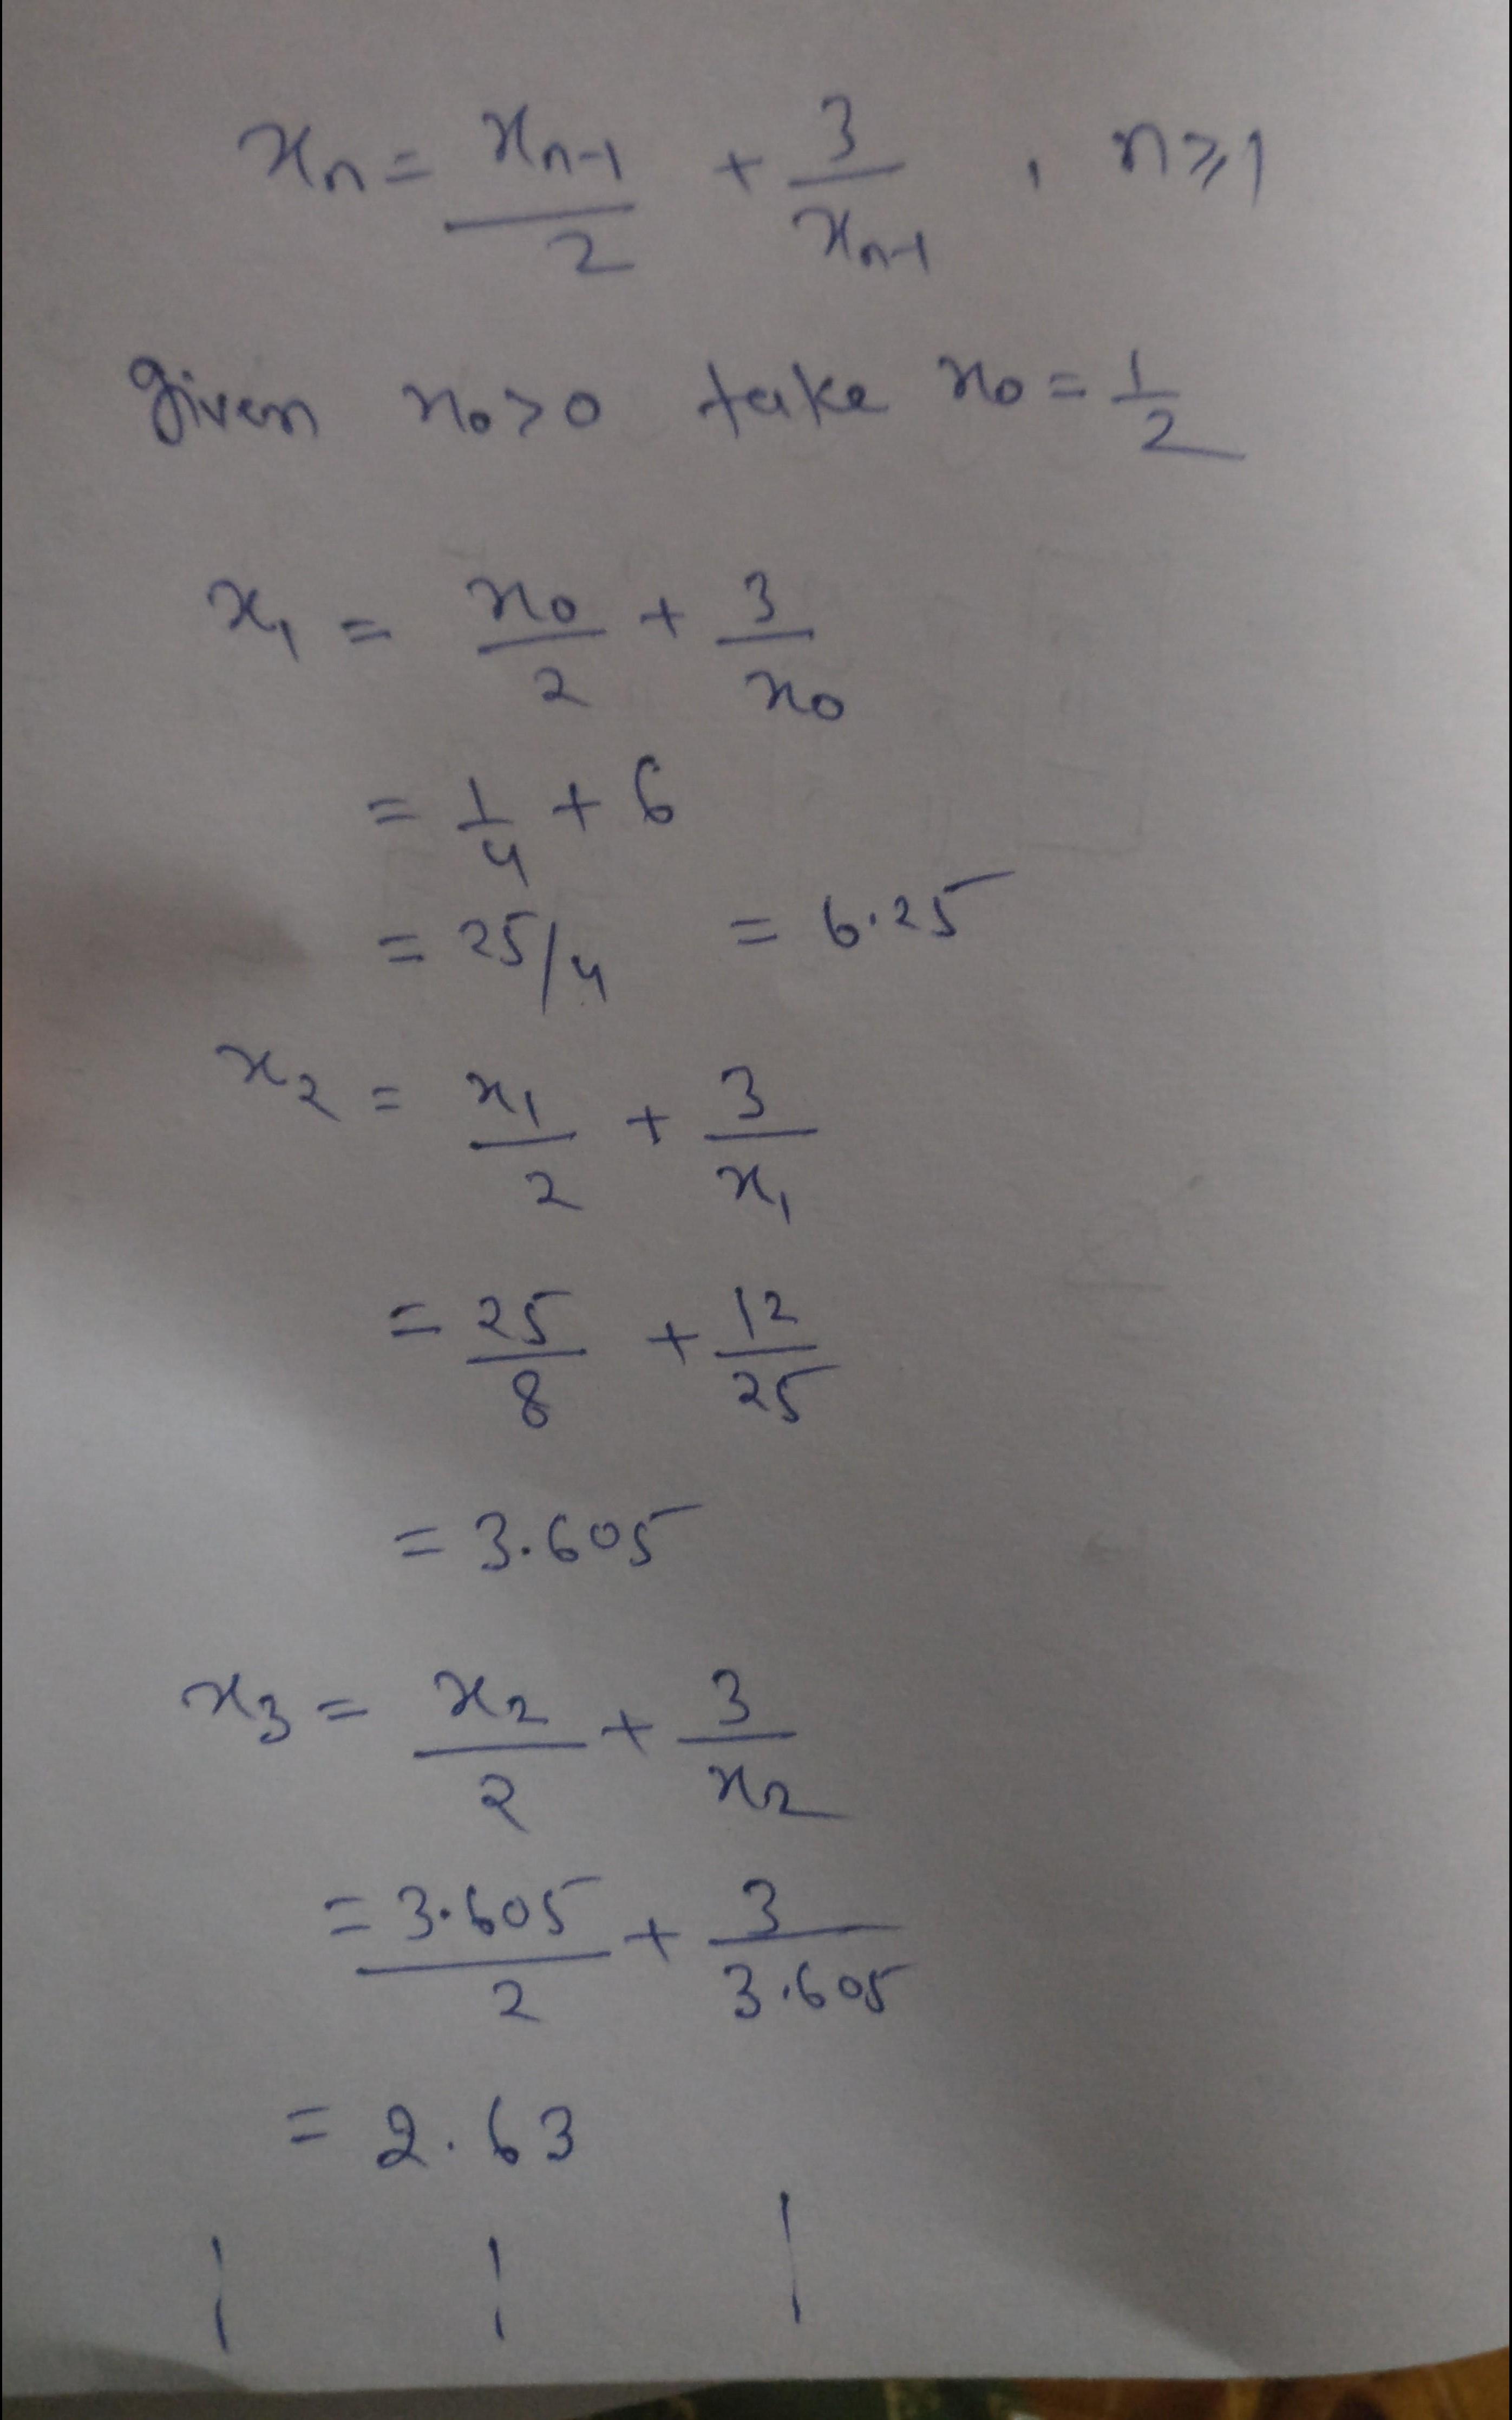 xₙ = xₙ₋₁/2 + 3/xₙ₋₁ , n ≥ 1
Given x₀ > 0 take x₀ = 1/2
x₁ = x₀/2 + 3/x₀
= 1/4 + 6
= 25/4 = 6.25
x₂ = x₁/2 + 3/x₁
= 25/8 + 12/25
= 3.605
x₃ = x₂/2 + 3/x₂
= 3.605/2 + 3/3.605
= 2.63